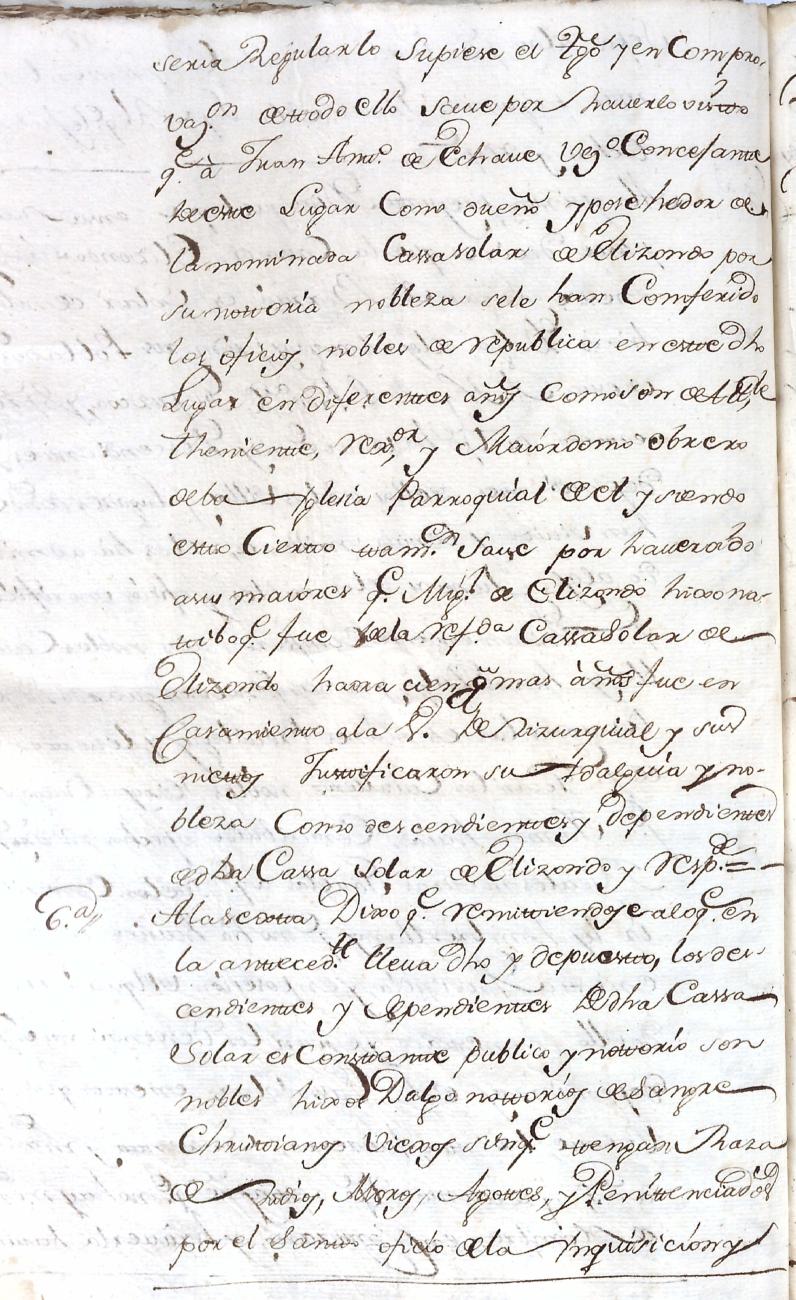 seria Regular lo Supiese el tgo y en Compro-
vaz.on de todo ello save por haverlo visto
q.e à Juan Ant.o de Echave Vez.o Concejante
de este Lugar Como dueño y posehedor de
la nominada Cassa solar de Elizondo por
su notoria nobleza se le han Comferido
los oficios nobles de republica en este dho
Lugar en diferentes años Como son de Alc.de
theniente, rex.or y Maiórdomo obrero
de la Yglesia Parroquial de el y siendo
esto Cierto tam.n Save por haver oido
a sus maiores q.e Mig.l de Elizondo hixo na-
tibo q.e fue de la ref.da Cassa Solar de
Elizondo havra cien y mas años fue en
Casamiento a la V.a de Vizurquial y sus
nietos Justificaron su Idalguia y no-
bleza Como descendientes y dependientes
de dha Cassa Solar de Elizondo y resp.de =
6.a A la sexta Dixo q.e remitiendose a lo q.e en
la anteced.te lleva dho y depuesto, los des-
cendientes y dependientes de dha Cassa
Solar es Constante publico y notorio son
nobles hixos Dalgo notorios de Sangre
Christianos Viexos sin q.e tengan Raza
de Judios, Moros, Agotes, y Penitenciados
por el Santo oficio de la Inquisicion y